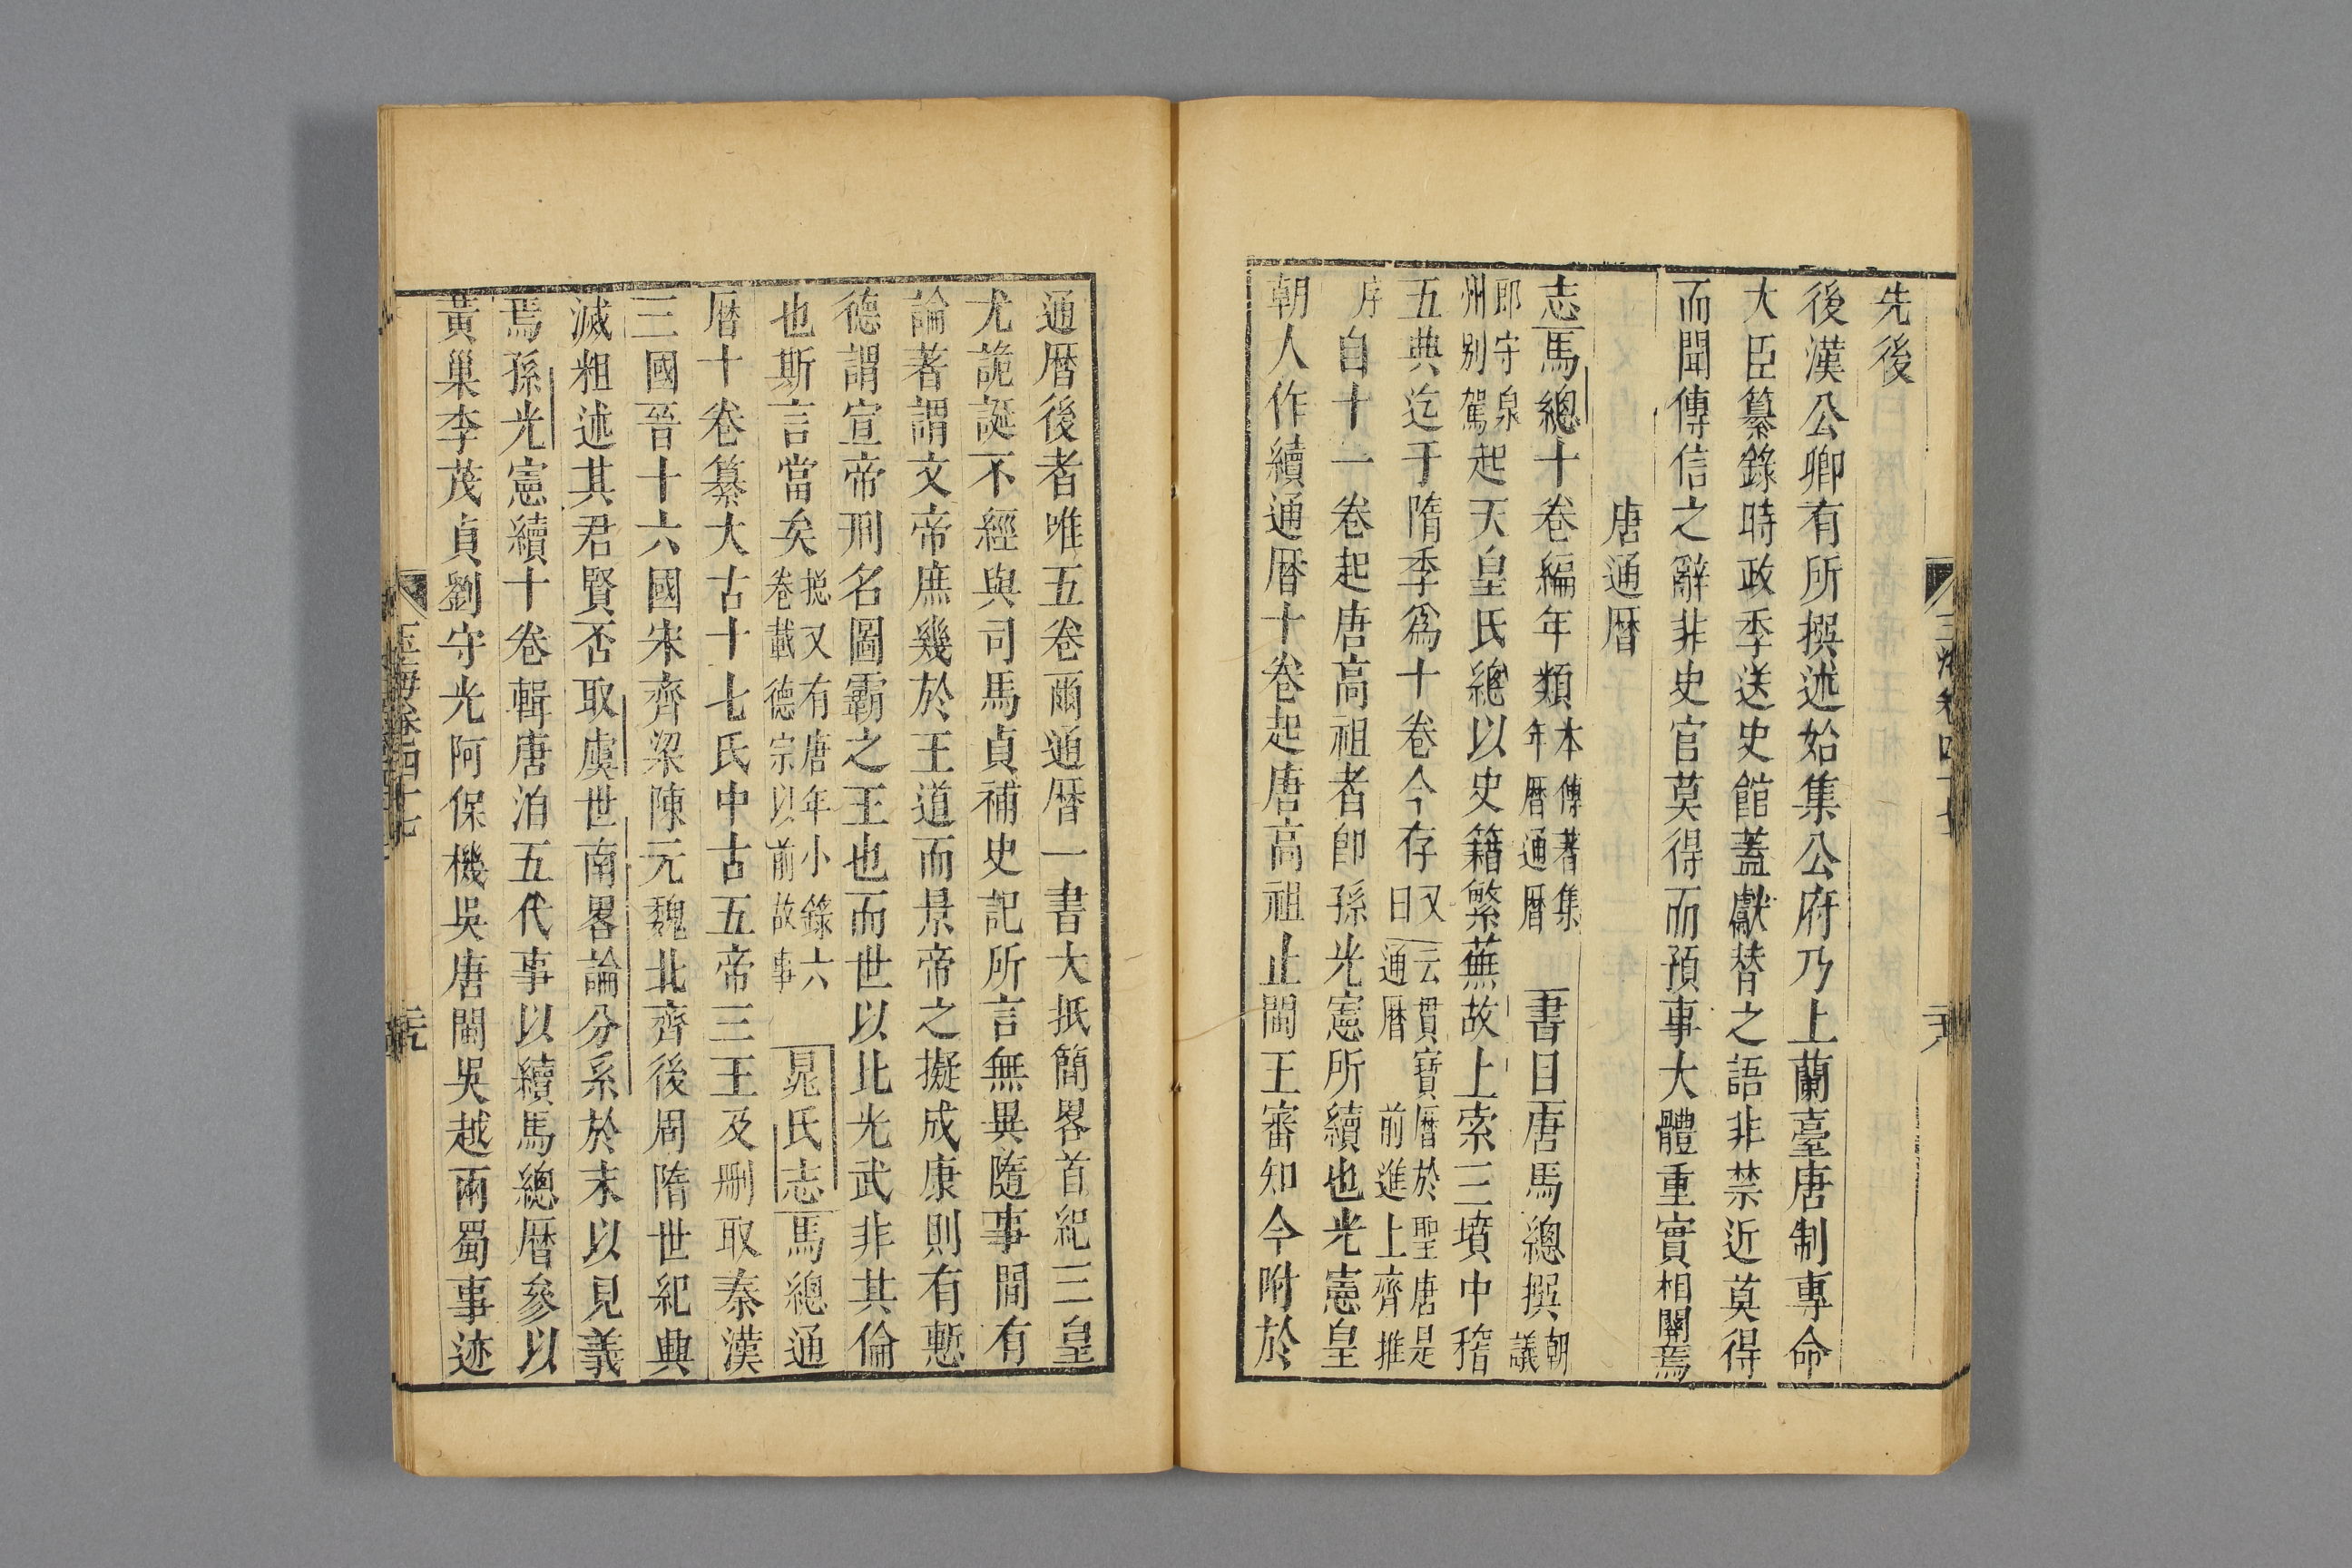 先後
後漢公卿有所撰述始集公府乃上蘭臺唐制專命
大臣纂錄時政季送史館蓋獻替之語非禁近莫得
而聞傳信之辭非史官莫得而預事大體重實相關焉
唐通曆
志馬總十卷編年類本傳著集年曆通曆 書目唐馬總撰朝議
郎守泉州别駕起天皇氏總以史籍繁蕪故上索三墳中稽
五典迄于隋季爲十卷今存又曰云貫寶曆於聖唐是通曆前進上齊推
序自十一卷起唐高祖者卽孫光憲所續也光憲皇
朝人作續通曆十卷起唐高祖止閩王審知今附於
通曆後者唯五卷爾通曆一書大抵簡畧首紀三皇
尤詭誕不經與司馬貞補史記所言無異隨事間有
論著謂文帝庶幾於王道而景帝之擬成康則有慙
德謂宣帝刑名圖霸之王也而世以比光武非其倫
也斯言當矣揔又有唐年小錄六卷載德宗以前故事 晁氏志馬總通
曆十卷纂大古十七氏中古五帝三王及刪取秦漢
三國晉十六國宋齊梁陳元魏北齊後周隋世紀典
滅粗述其君賢否取虞世南畧論分系於末以見義
焉孫光憲續十卷輯唐洎五代事以續馬總曆參以
黃巢李茂貞劉守光阿保機吳唐閩吳越兩蜀事迹
玉海卷四十七